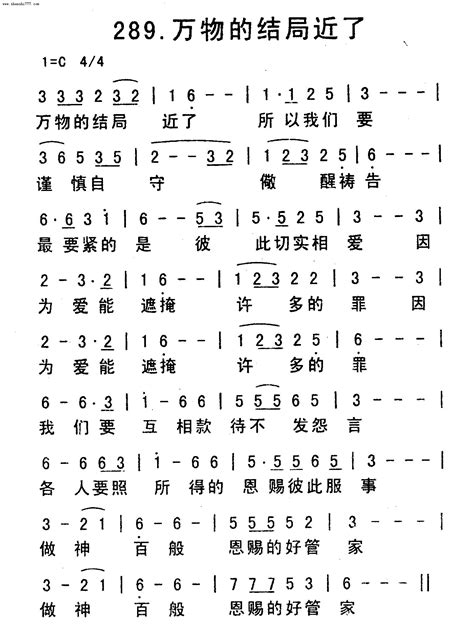 289.万物的结局近了
1=C 4/4
3 3 3 3 2 3 2 | 1 6 - - | 1 · 1 1 2 5 | 3 - - - |
万物的结局 近了 所以我们 要
3 6 5 3 5 | 2 - - 3 2 | 1 2 3 2 5 | 6 - - - |
谨 慎自 守 儆 醒祷告
6 · 6 3 1 | 6 - - 5 3 | 5 · 5 2 5 | 3 - - 3 |
最 要紧的 是 彼 此切实相 爱 因
2 - 3 · 2 | 1 6 - - | 1 2 3 2 2 | 3 - - 3 |
为 爱能 遮掩 许 多的 罪 因
2 - 3 · 2 | 1 6 - - | 1 2 3 2 5 | 6 - - - |
为 爱能 遮掩 许 多的 罪
6 - 6 · 3 | 1 - 6 6 | 5 5 5 6 5 | 3 - - - |
我 们要 互 相款 待不 发怨 言
6 - 6 6 3 | 1 - 6 6 | 5 5 5 6 5 | 3 - - - |
各 人要照 所 得的 恩 赐彼此服 事
3 - 2 1 | 6 - 6 - | 5 5 5 5 2 | 3 - - - |
做 神 百 般 恩赐的好管 家
3 - 2 1 | 6 - 6 - | 7 7 7 5 3 | 6 - - - ||
做 神 百 般 恩赐的好管 家